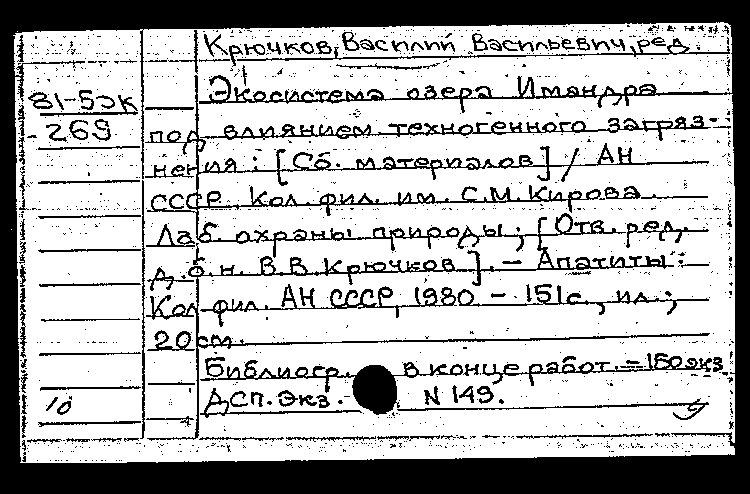 Крючков, Василий Васильевич, ред.
81-5эк
-269
Экосистема озера Имандра
под влиянием техногенного загряз-
нения : [Сб. материалов] / АН
СССР. Кол. фил. им. С.М. Кирова.
Лаб. охраны природы ; [Отв. ред.
д.б.н. В.В. Крючков]. – Апатиты :
Кол. фил. АН СССР, 1980 – 151с., ил. ;
20 см.
Библиогр. в конце работ. – 150 экз
ДСП. Экз. N 149.
10